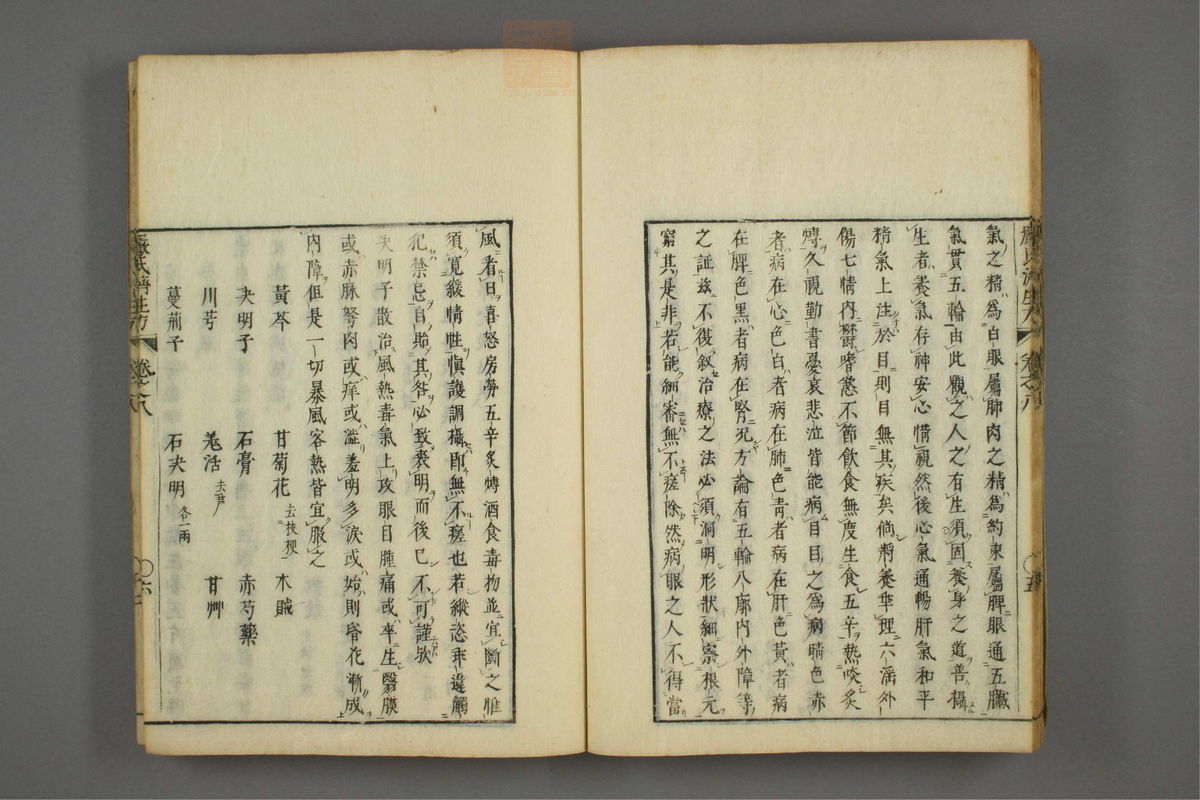 氣之精爲白眼屬肺肉之精爲約束屬脾眼通五臟
氣貫五輪由此觀之人之有生須固養身之道善攝
生者養氣存神安心惰視然後心氣通暢肝氣和平
精氣上注於目則目無其疾矣倘將養乖理六淫外
傷七情內鬱嗜慾不節飲食無度生食五辛熱啖炙
煿久視勤書憂哀悲泣皆能病目目之爲病睛色赤
者病在心色白者病在肺色靑者病在肝色黃者病
在脾色黑者病在腎況方論有五輪八廓內外障等
之証玆不復敘治療之法必須洞明形狀細察根元
窮其是非若能細審無不瘥除然病眼之人不得當
嚴氏濟生方 卷之八 五
風看日喜怒房勞五辛炙煿酒食毒物並宜斷之惟
須寬緩情性愼護調攝卽無不瘥也若縱恣乖違觸
犯禁忌自貽其咎必致喪明而後已不可謹欤
决明子散治風熱毒氣上攻眼目腫痛或卒生翳膜
或赤脉弩肉或痒或澁羞明多淚或始則昏花漸成
內障但是一切暴風客熱皆宜服之
黃芩 甘菊花去枝梗 木賊
决明子 石膏 赤芍藥
川芎 羗活去芦 甘艸
蔓荊子 石决明各一兩
嚴氏濟生方 卷之八 六